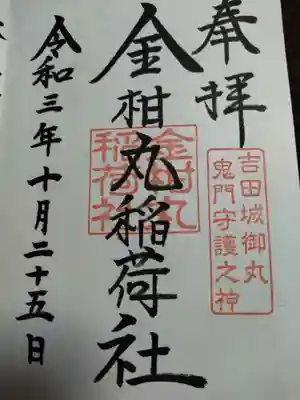 奉拝
吉田城御丸
鬼門守護之神
金柑丸稲荷社
金柑丸
稲荷社
令和三年十月二十五日